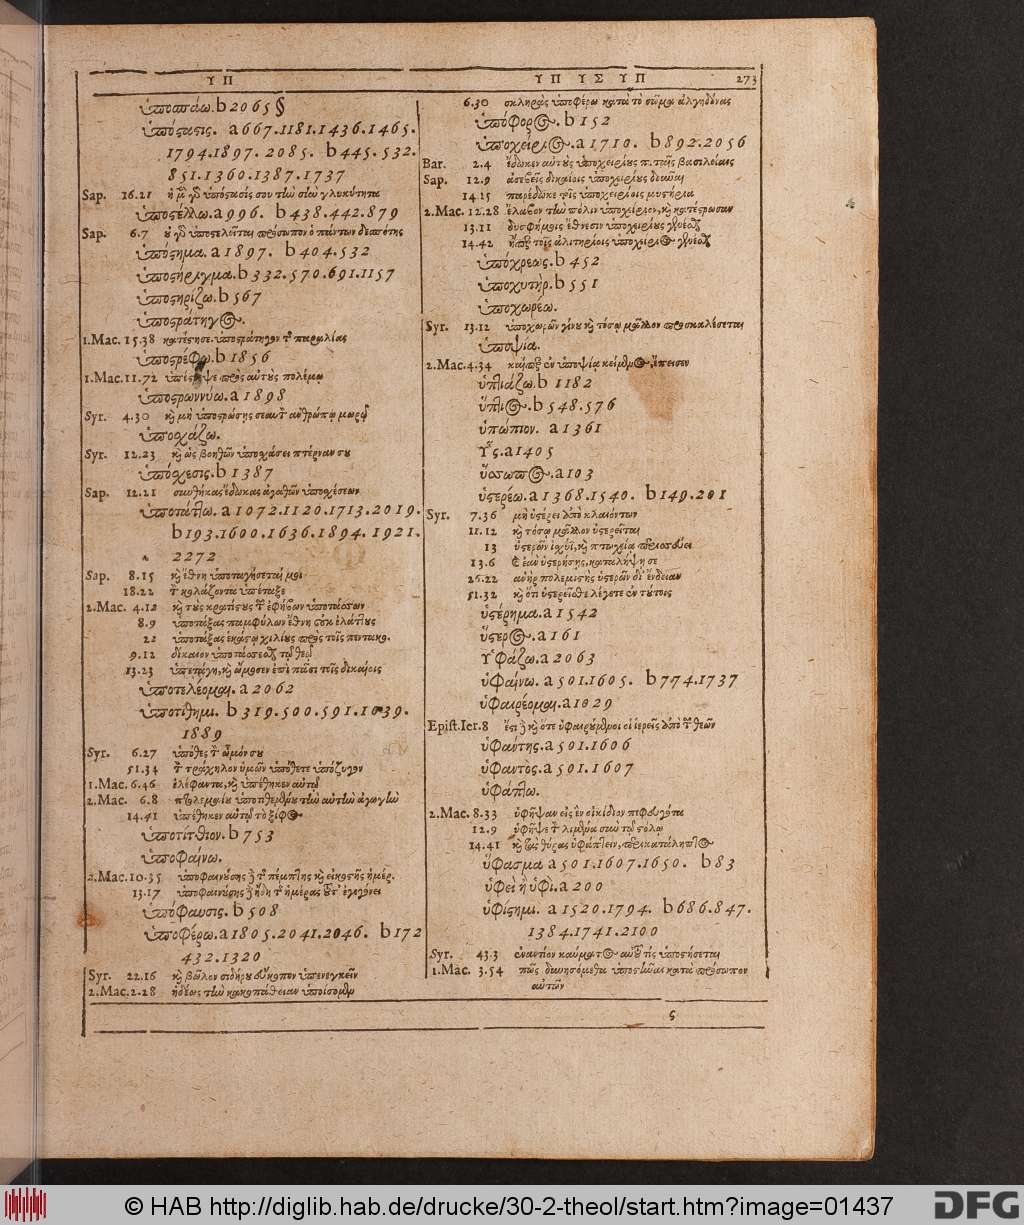 ΥΠ
ΥΠ ΥΣ ΥΠ 273
ὑποσπάω. b 2065 §
ὑπόστασις. a 667. 1181. 1436. 1465.
1794. 1897. 2085. b 445. 532.
851. 1360. 1387. 1737
Sap. 16.21 ἡ μὲν γὰρ ὑπόστασίς σου τὴν σὴν γλυκύτητα
ὑποστέλλω. a 996. b 438. 442. 879
Sap. 6.7 οὐ γὰρ ὑποστελεῖται πρόσωπον ὁ πάντων δεσπότης
ὑπόστημα. a 1897. b 404. 532
ὑποστήριγμα. b 332. 570. 691. 1157
ὑποστηρίζω. b 567
ὑποστράτηγος.
1. Mac. 15.38 κατέστησε ὑποστράτηγον τῆς παραλίας
ὑποστρέφω. b 1856
1. Mac. 11.72 ὑπέστρεψε πρὸς αὐτοὺς πολέμῳ
ὑποστρωννύω. a 1898
Syr. 4.30 καὶ μὴ ὑποστρώσῃς σεαυτὸν ἀνθρώπῳ μωρῷ
ὑποσχάζω.
Syr. 12.23 καὶ ὡς βοηθῶν ὑποσχάσει πτέρναν σου
ὑπόσχεσις. b 1387
Sap. 12.21 συνθήκας ἔδωκας ἀγαθῶν ὑποσχέσεων
ὑποτάττω. a 1072. 1120. 1713. 2019.
b 193. 1600. 1636. 1894. 1921.
2272
Sap. 8.15 καὶ ἔθνη ὑποταγήσεταί μοι
18.22 τὸν κολάζοντα ὑπέταξε
2. Mac. 4.12 καὶ τοὺς κρατίστους τῶν ἐφήβων ὑποτάσσων
8.9 ὑποτάξας παμφύλων ἔθνη οὐκ ἐλάττους
22 ὑποτάξας ἑκάστῳ χιλίους πρὸς τοῖς πεντακο.
9.12 δίκαιον ὑποτάσσεσθαι τῷ θεῷ
13.23 ὑπετάγη, καὶ ὤμοσεν ἐπὶ πᾶσι τοῖς δικαίοις
ὑποτελέομαι. a 2062
ὑποτίθημι. b 319. 500. 591. 1039.
1889
Syr. 6.27 ὑπόθες τὸν ὦμόν σου
51.34 τὸν τράχηλον ὑμῶν ὑπόθετε ὑπὸ ζυγὸν
1. Mac. 6.46 ἐλέφαντα, καὶ ὑπέθηκεν αὐτῷ
2. Mac. 6.8 πτολεμαίου ὑποτιθεμένου τὴν αὐτὴν ἀγωγὴν
14.41 ὑπέθηκεν αὑτῷ τὸ ξίφος
ὑποτίτθιον. b 753
ὑποφαίνω.
2. Mac. 10.35 ὑποφαινούσης δὲ τῆς πέμπτης καὶ εἰκοστῆς ἡμέρ.
13.17 ὑποφαινούσης δὲ ἤδη τῆς ἡμέρας τοῦτ' ἐγεγόνει
ὑπόφαυσις. b 508
ὑποφέρω. a 1805. 2041. 2046. b 172
432. 1320
Syr. 22.16 καὶ βῶλον σιδήρου εὔκοπον ὑπενεγκεῖν
2. Mac. 2.28 ἡδέως τὴν κακοπάθειαν ὑποίσομεν
6.30 σκληρὰς ὑποφέρω κατὰ τὸ σῶμα ἀλγηδόνας
ὑπόφορος. b 152
ὑποχείριος. a 1710. b 892. 2056
Bar. 2.4 ἔδωκεν αὐτοὺς ὑποχειρίους π. ταῖς βασιλείαις
Sap. 12.9 ἀσεβεῖς δικαίοις ὑποχειρίους δοῦναι
14.15 παρέδωκε τοῖς ὑποχειρίοις μυστήρια
2. Mac. 12.28 ἔλαβον τὴν πόλιν ὑποχείριον, καὶ κατέστρωσαν
13.11 δυσφήμοις ἔθνεσιν ὑποχειρίους γενέσθαι
14.42 ἤπερ τοῖς ἀλιτηρίοις ὑποχείριος γενέσθαι
ὑπόχρεως. b 452
ὑποχυτήρ. b 551
ὑποχωρέω.
Syr. 13.12 ὑποχωρῶν γίνου καὶ τόσῳ μᾶλλον προσκαλέσεται
ὑποψία.
2. Mac. 4.34 καίπερ ἐν ὑποψίᾳ κείμενος, ἔπεισεν
ὑπτιάζω. b 1182
ὕπτιος. b 548. 576
ὑπώπιον. a 1361
Ὗς. a 1405
ὕσσωπος. a 103
ὑστερέω. a 1368. 1540. b 149. 201
Syr. 7.36 μὴ ὑστέρει ἀπὸ κλαιόντων
11.12 καὶ τόσῳ μᾶλλον ὑστερεῖται
13 ὑστερῶν ἰσχύϊ, καὶ πτωχείᾳ περισσεύει
13.6 ἐὰν ὑστερήσῃς, καταλείψῃ σε
26.22 ἀνὴρ πολεμιστὴς ὑστερῶν δι' ἔνδειαν
51.32 καὶ ὅτι ὑστερεῖσθε λέγετε ἐν τούτοις
ὑστέρημα. a 1542
ὕστερος. a 161
Ὑφάζω. a 2063
ὑφαίνω. a 501. 1605. b 774. 1737
ὑφαιρέομαι. a 1029
Epist. Ier. 8 ἔστι δὲ καὶ ὅτε ὑφαιρούμενοι οἱ ἱερεῖς ἀπὸ τῶν θεῶν
ὑφάντης. a 501. 1606
ὑφαντός. a 501. 1607
ὑφάπτω.
2. Mac. 8.33 ὑφῆψαν εἰς ἓν οἰκίδιον πεφευγότα
12.9 ὑφῆψε τὸν λιμένα σὺν τῷ στόλῳ
14.41 καὶ τὰς θύρας ὑφάπτειν, περικατάληπτος
ὕφασμα a 501. 1607. 1650. b 83
ὑφεὶ ἢ ὑφὶ. a 200
ὑφίστημι. a 1520. 1794. b 686. 847.
1384. 1741. 2100
Syr. 43.3 ἐναντίον καύματος αὐτοῦ τίς ὑποστήσεται
1. Mac. 3.54 πῶς δυνησόμεθα ὑποστῆναι κατὰ πρόσωπον
αὐτῶν
ς
© HAB http://diglib.hab.de/drucke/30-2-theol/start.htm?image=01437
DFG